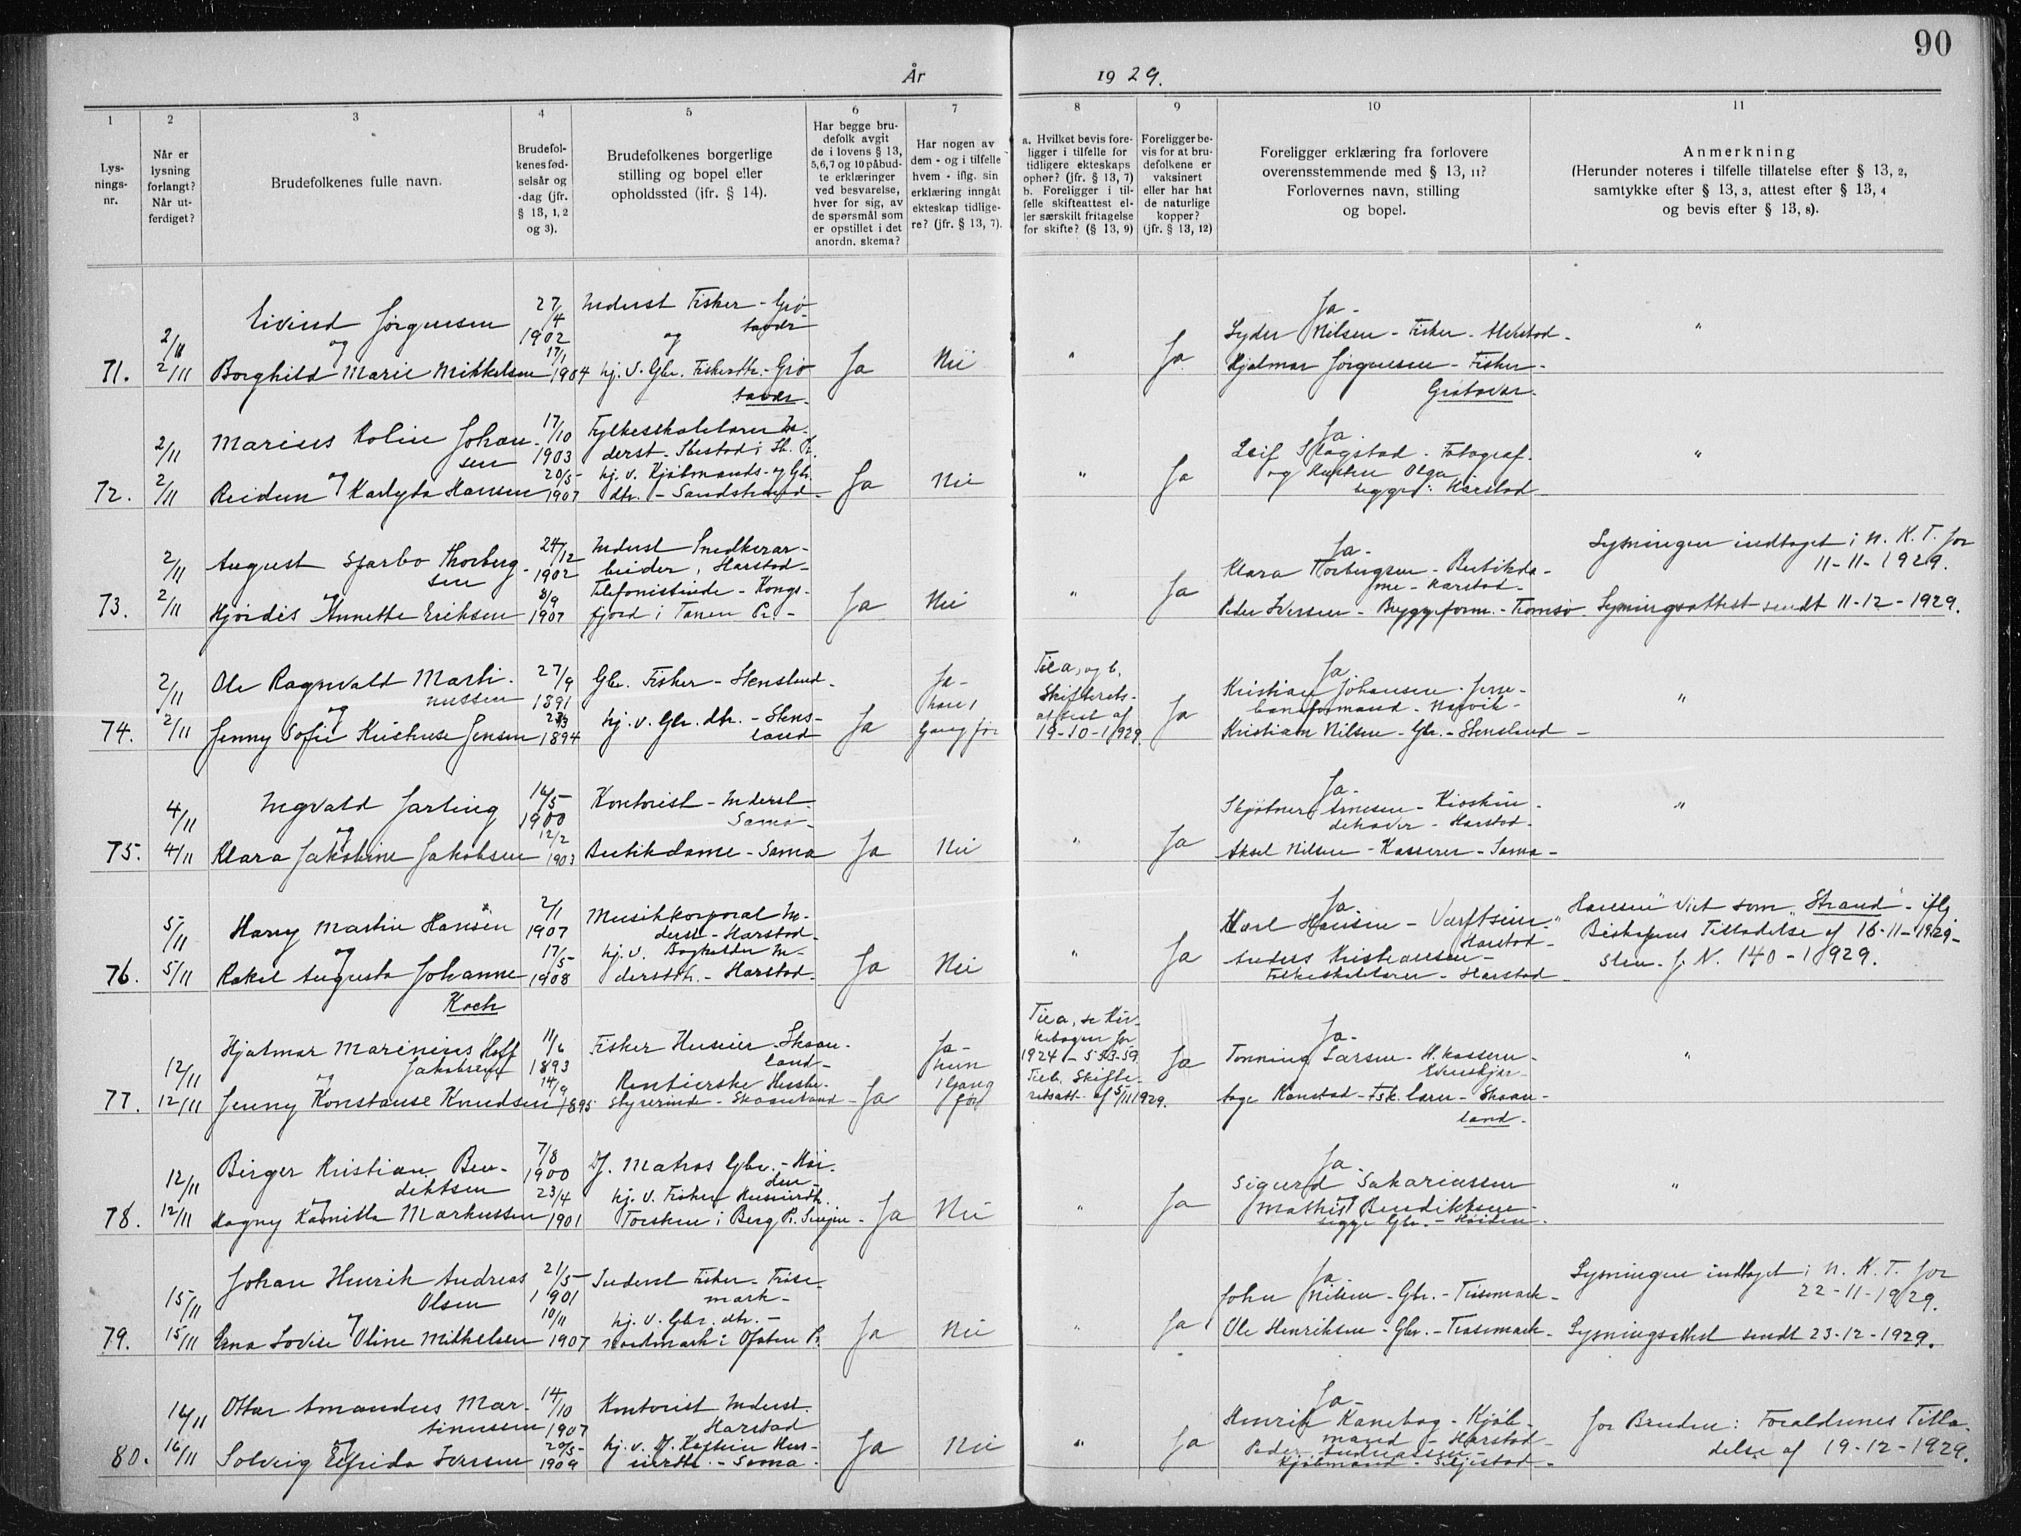 90
År
1929.
1
2
3
4
5
6
7
8
9
10
11
Lys-
nings-
nr.
Når er
lysning
forlangt?
Når ut-
ferdiget?
Brudefolkenes fulle navn.
Brudefol-
kenes fød-
selsår og
-dag (jfr.
§ 13, 1, 2
og 3).
Brudefolkenes borgerlige
stilling og bopel eller
opholdssted (jfr. § 14).
Har begge bru-
defolk avgit
de i lovens § 13,
5,6,7 og 10 påbud-
te erklæringer
ved besvarelse,
hver for sig, av
de spørsmål som
er opstillet i det
anordn. skema?
Har nogen av
dem - og i tilfelle
hvem - iflg. sin
erklæring inngått
ekteskap tidlige-
re? (jfr. § 13, 7).
a. Hvilket bevis fore-
ligger i tilfelle for
tidligere ekteskaps
ophør? (jfr. § 13, 7)
b. Foreligger i til-
felle skifteattest el-
ler særskilt fritagelse
for skifte? (§ 13, 9)
Foreligger be-
vis for at bru-
defolkene er
vaksinert
eller har hat
de naturlige
kopper?
(jfr. § 13, 12)
Foreligger erklæring fra forlovere
overensstemmende med § 13, 11?
Forlovernes navn, stilling
og bopel.
Anmerkning
(Herunder noteres i tilfelle tillatelse efter § 13, 2,
samtykke efter § 13, 3, attest efter § 13, 4
og bevis efter § 13, 8).
71.
2/11
2/11
Eivind Jørgensen
og
Borghild Marie Mikkelsen
27/4
1902
17/1
1904
Inderst Fisker - Grø-
tavær
og
hj. v. Gbr. Fiskerdtr. - Grø
tavær.
Ja
Nei
"
Ja
Ja -
Lyder Nilsen - Fisker -
Hjalmar Jørgensen - Fisker -
Grøtavær.
"
72.
2/11
2/11
Marius Kolin Johan-
sen
og
Reidun Hansen
17/10
1903
20/5
1907
Fylkesskolelærer In-
derst - Ibestad i Ib. Pr.
hj. v. Kjøbmands- og Gbr.
dtr. - Sandstrand -
Ja
Nei
"
Ja
Ja.
Leif Skogstad - Fotograf.
og Hustru Olga
begge: Harstad -
"
73.
2/11
2/11
August Sjarbo Thorberg-
sen
og
Hjørdis Annette Eriksen
24/12
1902
8/9
1907
Inderst Snedkerar-
beider, Harstad -
Telefonistinde - Kongs-
fjord i Tanen Pr. -
Ja
Nei
"
Ja
Ja -
Klara Torbergsen - Butikda-
me - Harstad -
Peder Iversen - Byggeform. - Tromsø
Lysningen indtaget i N. K. T. for
11-11-1929.
Lysningsattest sendt 11-12-1929.
74.
2/11
2/11
Ole Ragnvald Marti-
nussen
og
Jenny Sofie Jensen
27/9
1891
1894
Gbr. Fisker - Stensland -
hj. v. Gbr. dtr. - Stens-
land
Ja
Ja -
han 1
Gang før
Til a, og b,
Skifterets-
attest af
19-10-1929.
Ja
Ja
Kristian Johansen - Jern-
baneformand - Narvik -
Kristian Nilsen - Gbr. - Stensland -
"
75.
4/11
4/11
Ingvald Jarling
og
Klara Jakobine Jakobsen
16/5
1900
12/2
1903
Kontorist - Inderst
Sama -
Butikdame - Sama
Ja
Nei
"
Ja
Ja -
Skjøtner Arnesen - Kioskin-
dehaver - Harstad -
Aksel Nilsen - Kasserer - Sama -
"
76.
5/11
5/11
Harry Martin Hansen
og
Rakel Augusta Johanne
Koch
2/1
1907
17/5
1908
Musikkorporal In-
derst - Harstad -
hj. v. Bogholder In-
derstdtr. - Harstad -
Ja
Nei
"
Ja
Ja -
Karl Hansen -
Harstad -
Anders Kristiansen -
Folkeskolelærer - Harstad
Hansen" viet som "Strand" - iflg
Biskopens Tilladelse af 16-11-1929 -
J. N. 140-1929.
77.
12/11
12/11
Hjalmar Marenius Hoff
Jakobsen
og
Jenny Konstanse Knudsen
11/6
1893
14/9
1895
Fisker Huseier - Skaan-
land -
Rentierske Husbe-
styrerinde - Skaanland -
Ja
Ja -
hun
1 Gang
før
Til a, se Kir-
kebogen for
1924 -
Til b. Skifte-
retsatt. af 5/11 1929.
Ja
Ja -
Tonning Larsen - H. kasserer -
Evenskjær -
Kanstad - Fsk. lærer - Skaan-
land.
"
78.
12/11
12/11
Birger Kristian Ben-
diktsen
og
Ragny Markussen
7/8
1900
23/4
1901
Df. Matros Gbr. - Køi-
den -
hj. v. Fisker Huseierdtr.
Torsken i Berg Pr. Senjen -
Ja
Nei
"
Ja
Ja -
Sigurd Sakariassen
Mathis Bendiktsen -
begge Gbr. - Køiden.
"
79.
15/11
15/11
Johan Henrik Andreas
Olsen
og
Erna Lovise Oline Mikkelsen
21/5
1901
10/11
1907
Inderst Fisker -
mark -
hj. v. Gbr. dtr. -
i Ofoten Pr.
Ja
Nei
"
Ja
Ja
John Nilsen - Gbr. -
Ole Henriksen - Gbr. -
Lysningen indtaget i N. K. T. for
22-11-1929.
Lysningsattest sendt 23-12-1929.
80.
16/11
16/11
Ottar Amandus Mar-
tinussen
og
Solveig Elfrida Iversen
14/10
1907
20/5
1909
Kontorist Inderst.
Harstad
hj. v. Df. Kaptein Hus-
eierdtr. - Sama -
Ja
Nei
"
Ja
Ja -
Henrik Kanebog - Kjøb-
mand - Harstad -
Peder Andreassen -
Kjøbmand -
For Bruden: Forældrenes Tilla-
delse af 19-12-1929.